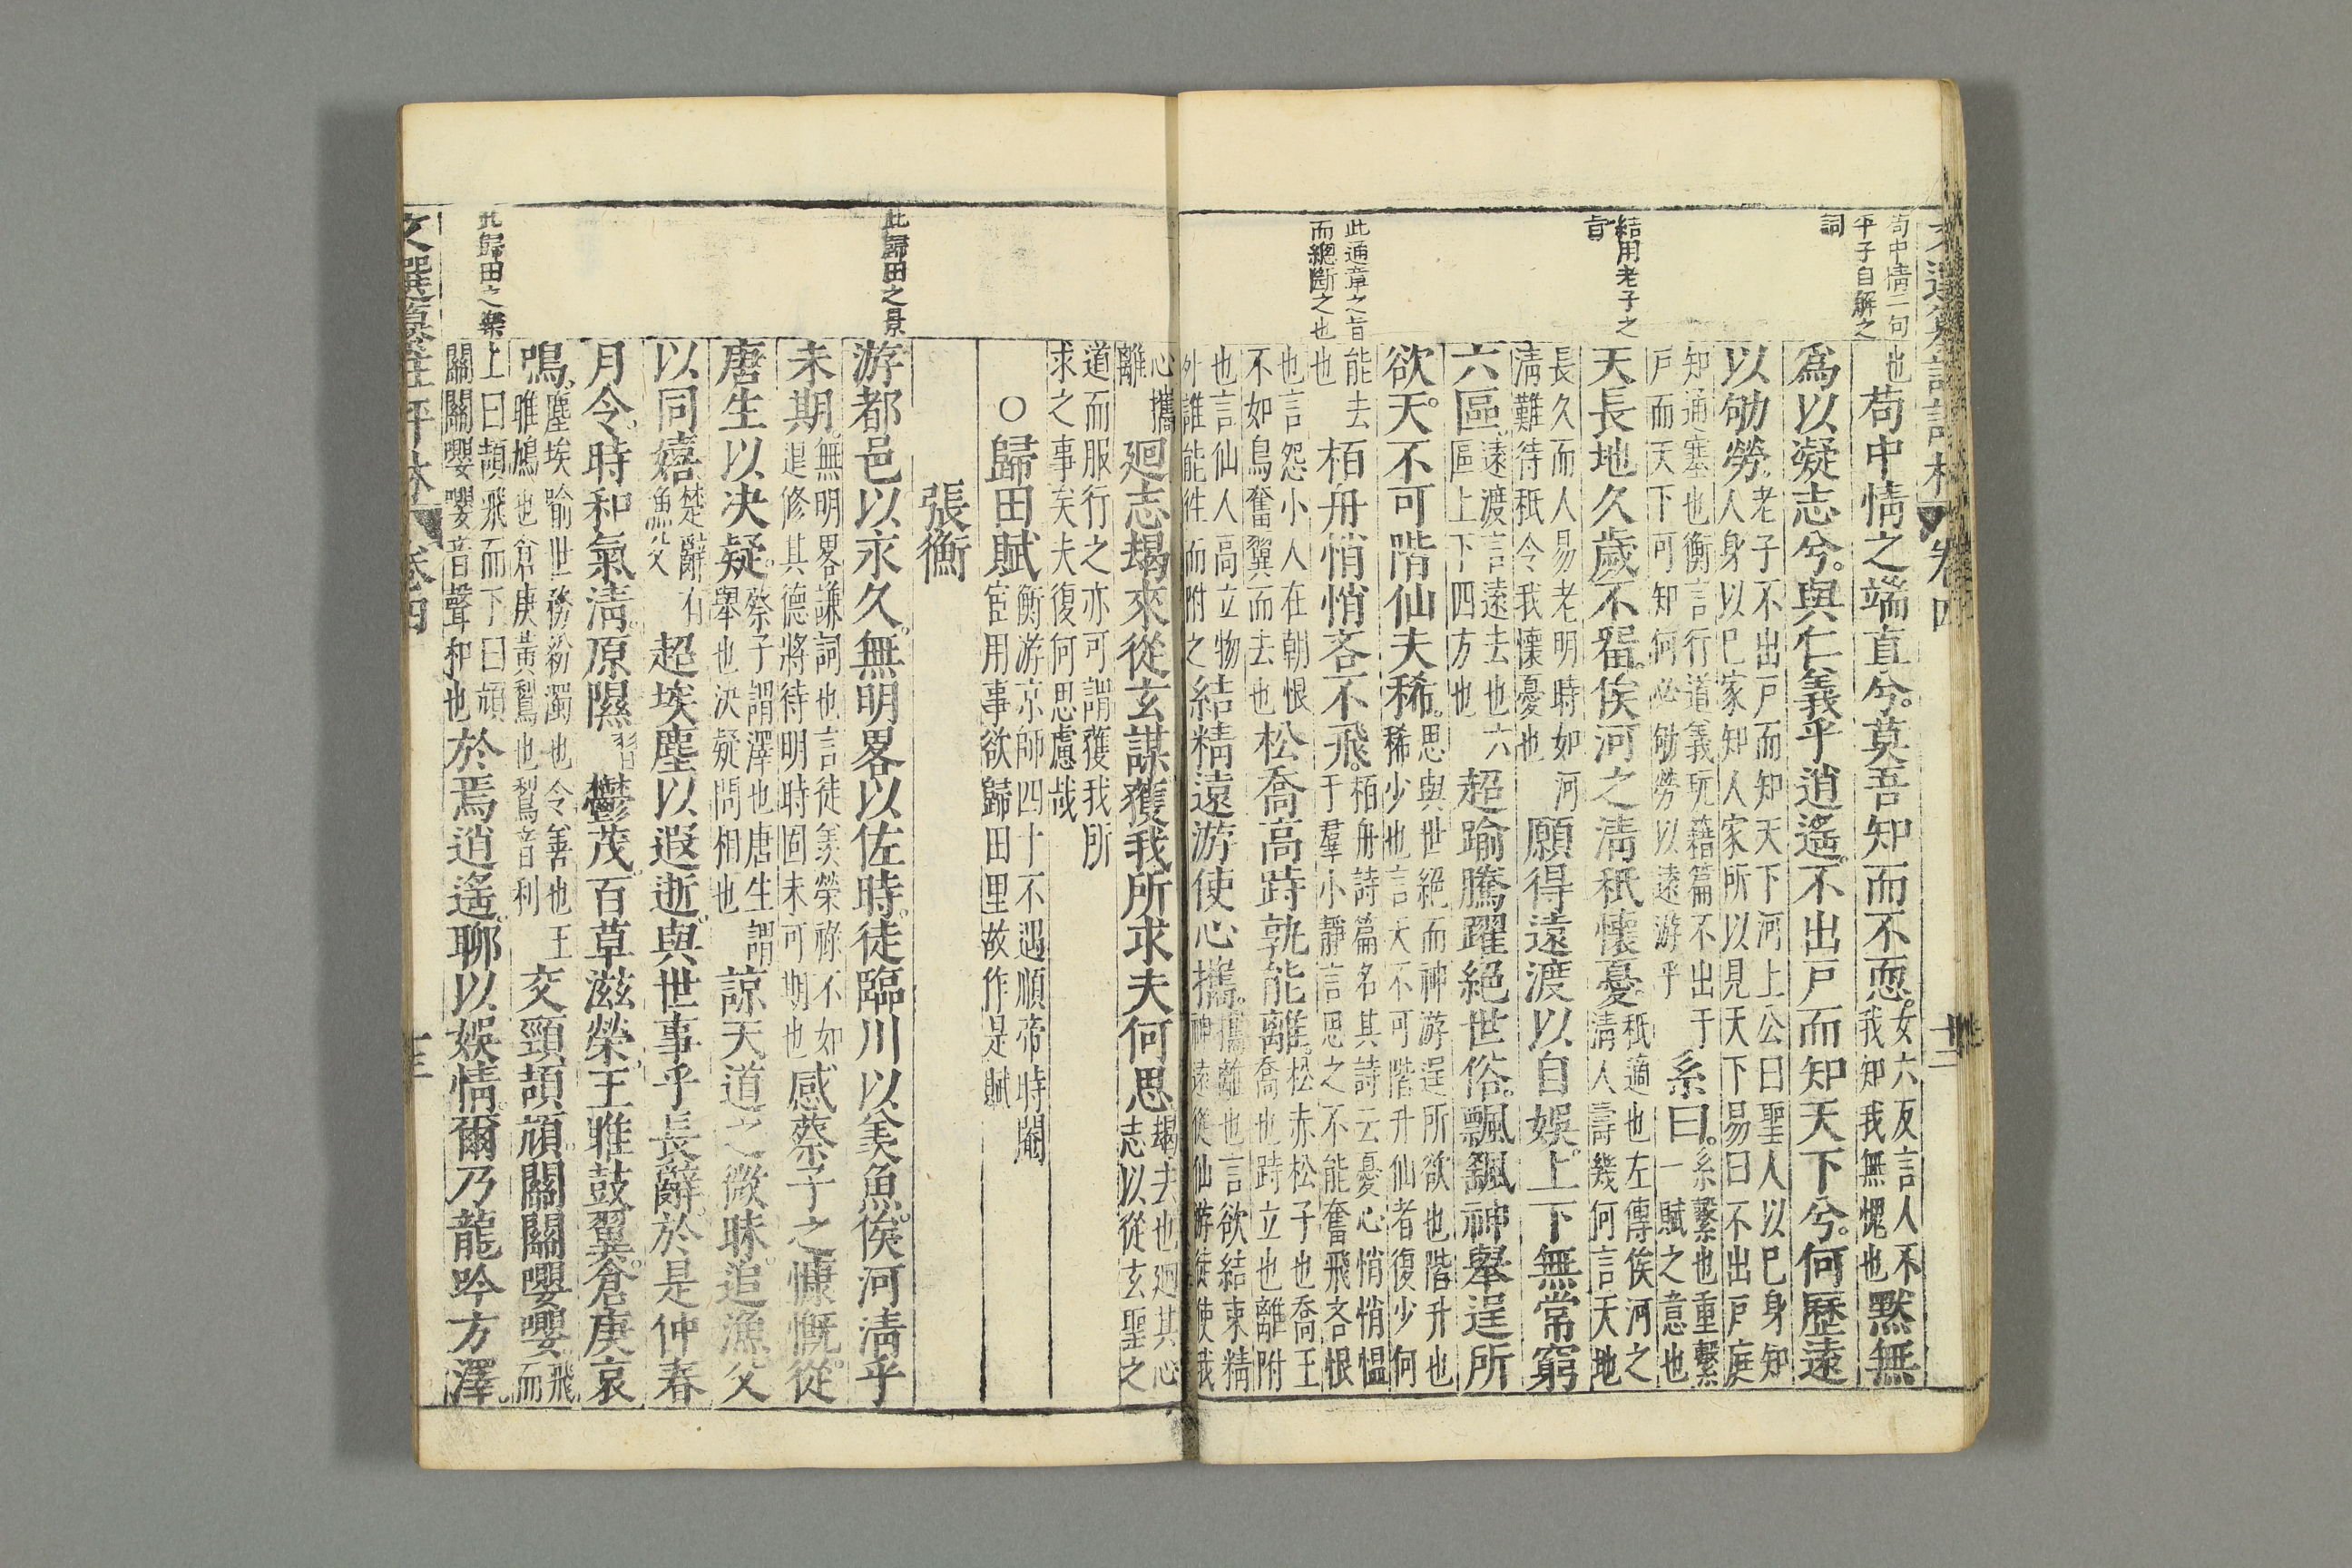 文選纂註評林 卷四 十二
苟中情二句
平子自解之
詞
結用老子之
旨
此通章之旨
而總斷之也
也苟中情之端直兮莫吾知而不恧女六反言人不我知我無愧也默無
爲以凝志兮與仁義乎逍遙不出戸而知天下兮何歷遠
以劬勞老子不出戸而知天下河上公曰聖人以巳身知人身以巳家知人家所以見天下易曰不出戸庭
知通塞也衡言行道義玩籍篇不出于戸而天下可知何必劬勞以遠游乎系曰系繫也重繫一賦之意也
天長地久歲不畱俟河之淸秖懷憂秖適也左傳俟河之淸人壽幾何言天地
長久而人易老明時如河淸難待秖令我懷憂也願得遠渡以自娛上下無常窮
六區遠渡言遠去也六區上下四方也超踰騰躍絕世俗飄颻神舉逞所
欲天不可階仙夫稀思與世絕而神游逞所欲也階升也稀少也言天不可階升仙者復少何
能去也栢舟悄悄吝不飛栢舟詩篇名其詩云憂心悄悄愠于羣小靜言思之不能奮飛吝恨
也言怨小人在朝恨不如鳥奮翼而去也松喬高跱孰能離松赤松子也喬王喬也跱立也離附
也言仙人高立物外誰能往而附之結精遠游使心攜攜離也言欲結束精神遠從仙游徒使我
心攜離廻志朅來從玄謀獲我所求夫何思朅去也廻其心志以從玄聖之
道而服行之亦可謂獲我所求之事矣夫復何思慮哉
○歸田賦衡游京師四十不遇順帝時閹宦用事欲歸田里故作是賦
張衡
此歸田之景
此歸田之樂
游都邑以永久無明畧以佐時徒臨川以羡魚俟河淸乎
未期無明畧謙詞也言徒羡榮祿不如退修其德將待明時固未可期也感蔡子之慷慨從
唐生以決疑蔡子謂澤也唐生謂舉也決疑問相也諒天道之微昧追漁父
以同嬉楚辭有魚父超埃塵以遐逝與世事乎長辭於是仲春
月令時和氣淸原隰習鬱茂百草滋榮王雎鼓翼倉庚哀
鳴塵埃踰世務紛濁也令善也王雎鳩也倉庚黃鸝也鸝音利交頸頡頏關關嚶嚶飛而
上曰頡飛而下曰頏關關嚶嚶音聲和也於焉逍遙聊以娛情爾乃龍吟方澤
文選纂註評林 卷四 十三